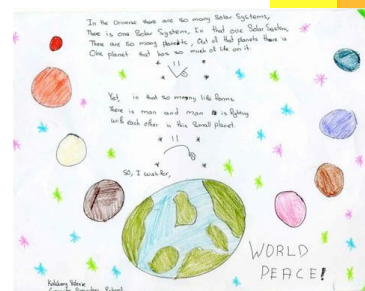 In the Universe there are so many Solar Systems,
There is one Solar System, In that one Solar System,
There are so many planets, Out of that planets there is
One planet that has so much of life on it.
Yet, in that so many life forms
There is man and man is fighting
with each other in this small planet.
SO, I wish for,
WORLD
PEACE!
School